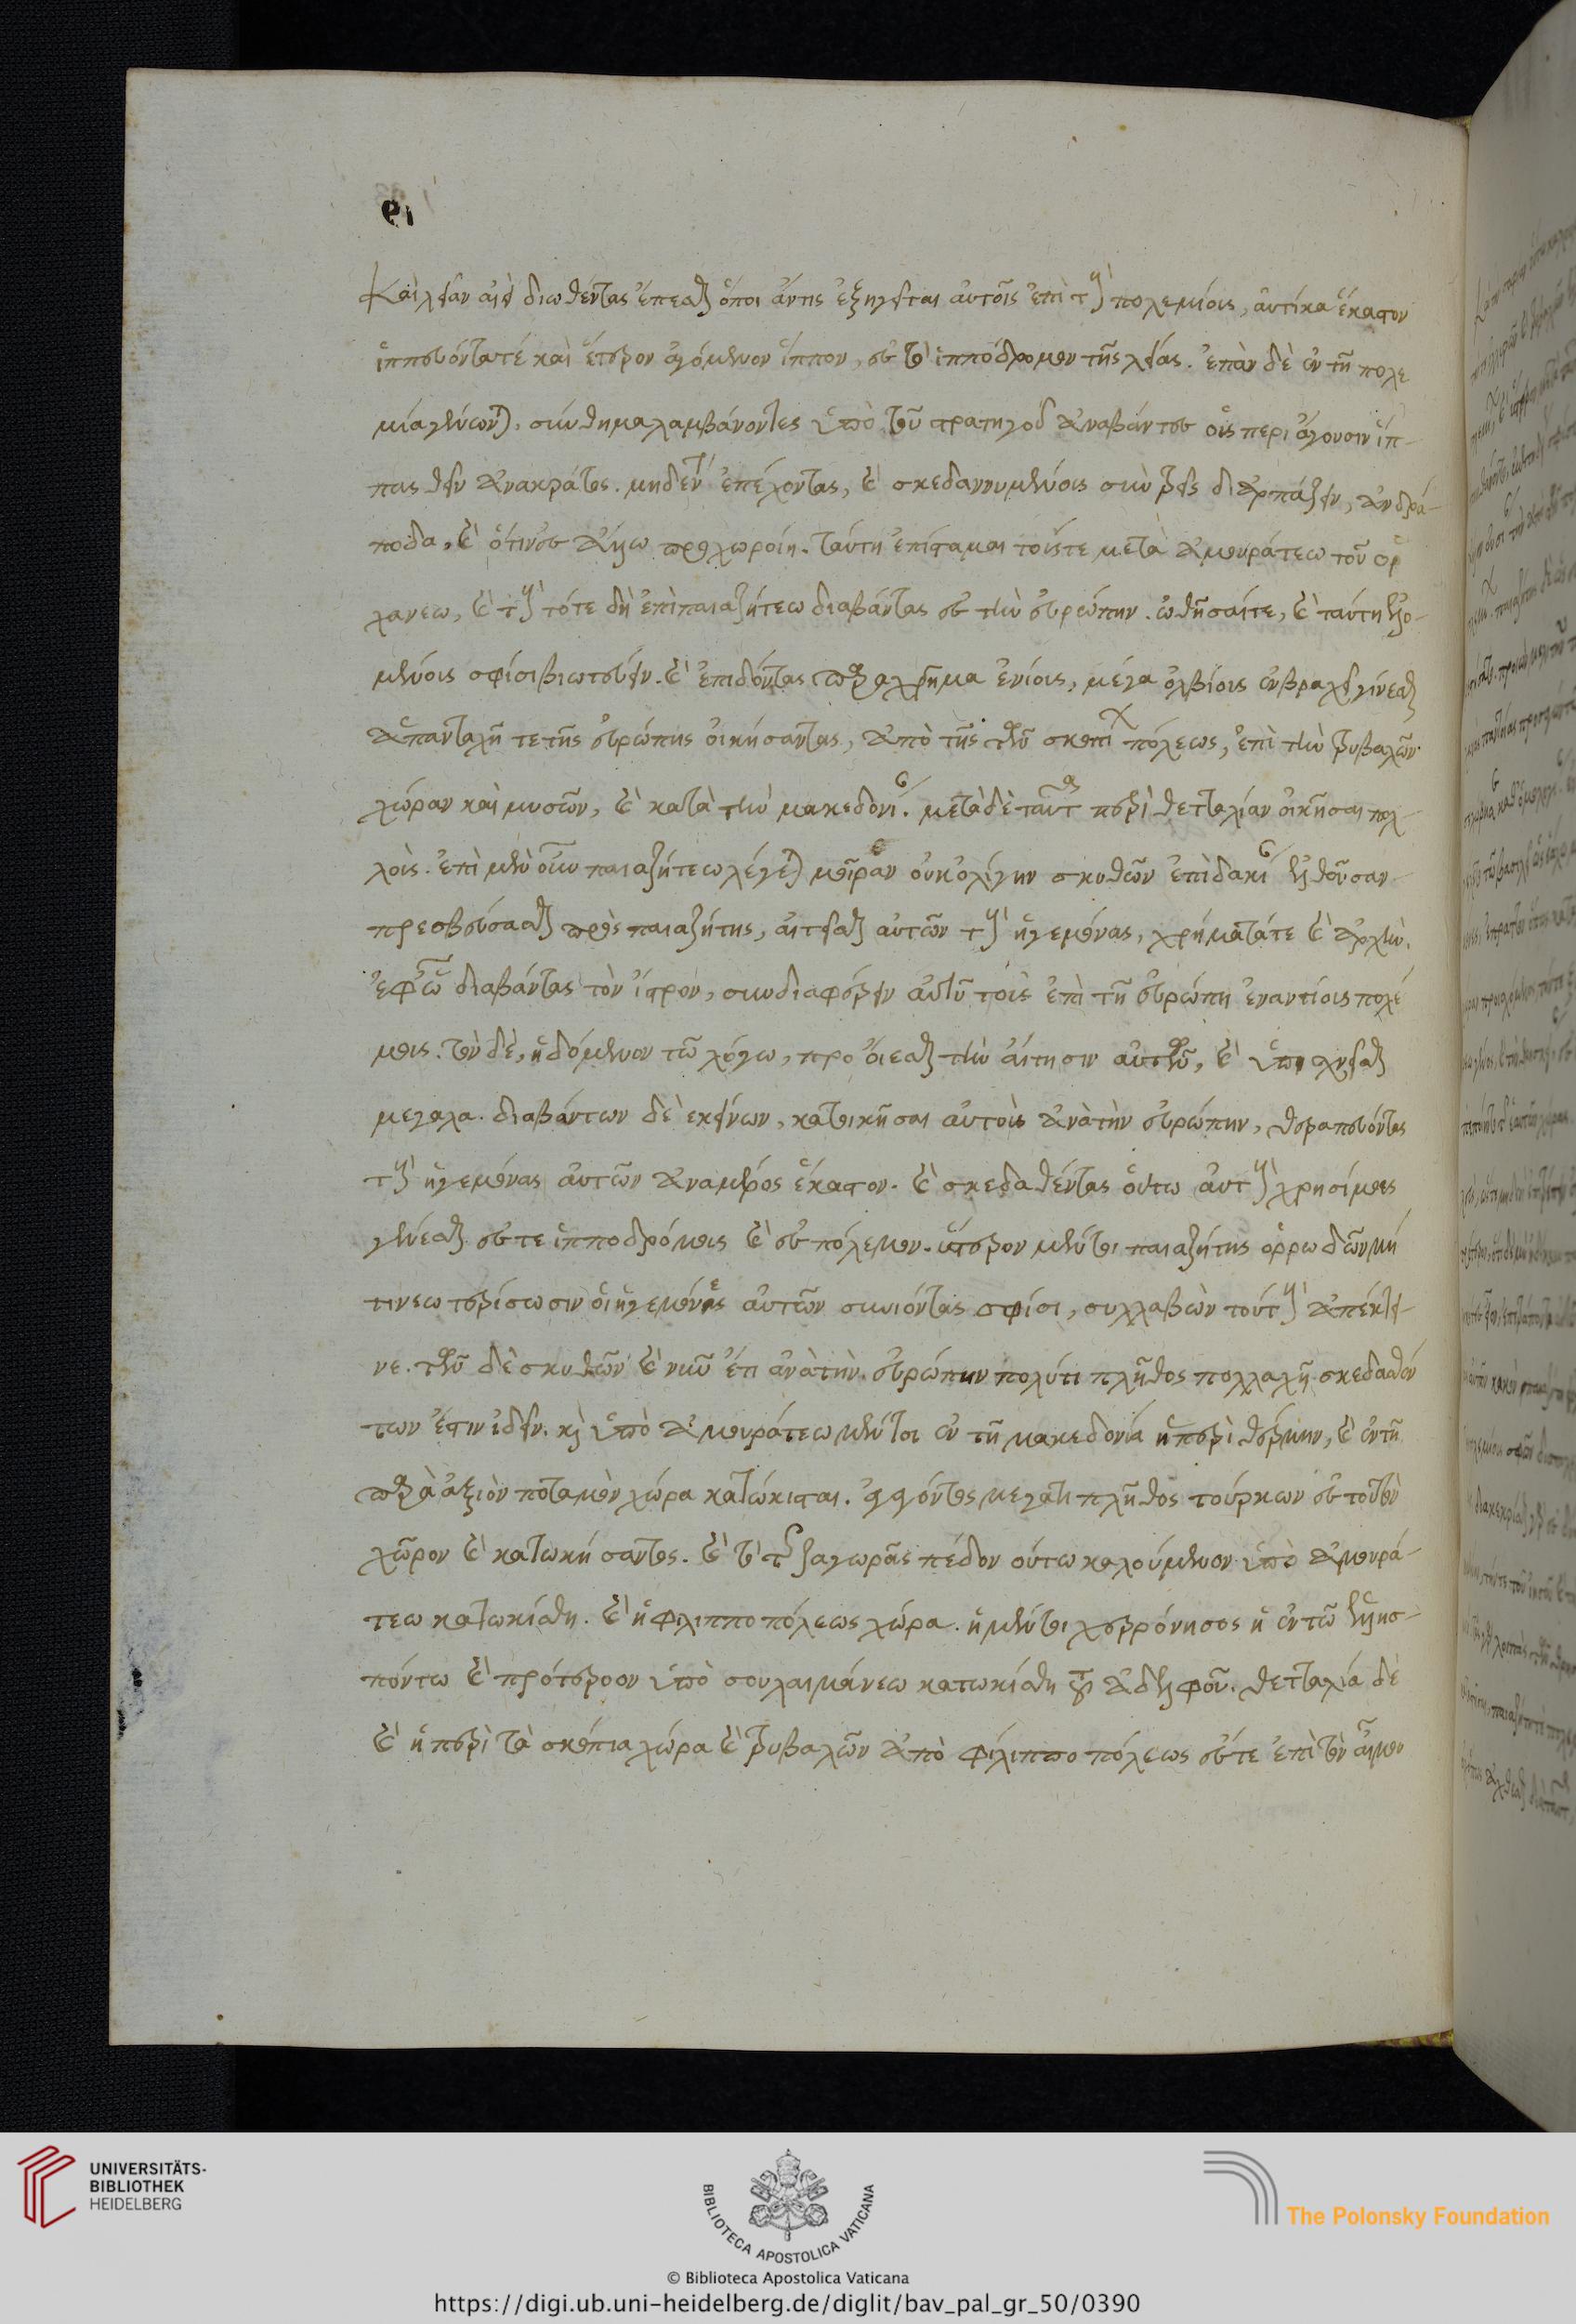 καὶ λείαν αἰεὶ διωθέντας ἕπεσθαι ὅποι ἄν τις ἐξηγεῖται αὐτοῖς ἐπὶ τοὺς πολεμίους, αὐτίκα ἕκαστον
ἱππεύοντά τε καὶ ἕτερον ἀγόμενον ἵππον, ἐς τὸ ἱππόδρομον τῆς λείας. ἐπὰν δὲ ἐν τῇ πολε
μίᾳ γένωνται, σύνθημα λαμβάνοντες ὑπὸ τοῦ στρατηγοῦ ἀναβάντες οὓς περιάγουσιν ἵπ-
πους θεῖν ἀνακράτος. μηδέν τι ἐπέχοντας, καὶ σκεδαννυμένους σὺν τρεῖς διαρπάζειν, ἀνδρά-
ποδα, καὶ ὅτι ἂν ἄλλο προχωροίη. ταύτῃ ἐπίσταμαι τούς τε μετὰ ἀμουράτεω τοῦ ὀρ
χάνεω, καὶ τοὺς τότε δὴ ἐπὶ παιαζήτεω διαβάντας ἐς τὴν εὐρώπην. ὠθῆσαί τε, καὶ ταύτῃ ἑλο-
μένους σφίσι βιωτεύειν. καὶ ἐπιδόντας παραχρῆμα ἐνίους, μέγα ὀλβίους ἐν βραχεῖ γίνεσθαι
ἁπανταχῇ τε τῆς εὐρώπης οἰκήσαντας, ἀπὸ τῆς τῶν σκοπίων πόλεως, ἐπὶ τὴν τριβαλῶν
χώραν καὶ μυσῶν, καὶ κατὰ τὴν μακεδονίαν. μετὰ δὲ ταῦτα περὶ θετταλίαν οἰκῆσαι πολ-
λούς. ἐπὶ μὲν οὖν παιαζήτεω λέγεται μοῖραν οὐκ ὀλίγην σκυθῶν ἐπὶ δακίαν ἐλθοῦσαν
πρεσβεύσασθαι πρὸς παιαζήτης, αἰτεῖσθαι αὐτῶν τοὺς ἡγεμόνας, χρήματά τε καὶ ἀρχὴν.
ἐφ᾽ ᾧ διαβάντας τὸν ἴστρον, συνδιαφέρειν αὐτῷ τοὺς ἐπὶ τῇ εὐρώπῃ ἐναντίους πολέ
μους. τὸν δὲ, ἡδόμενον τῷ λόγῳ, προσίεσθαι τὴν αἴτησιν αὐτῶν, καὶ ὑπισχνεῖσθαι
μεγάλα. διαβάντων δὲ ἐκείνων, κατοικῆσαι αὐτοὺς ἀνὰ τὴν εὐρώπην, θεραπεύοντας
τοὺς ἡγεμόνας αὐτῶν ἀναμέρος ἕκαστον. καὶ σκεδασθέντας οὕτω αὐτοὺς χρησίμους
γενέσθαι ἔς τε ἱπποδρόμους καὶ ἐς πόλεμον. ὕστερον μέντοι παιαζήτης ὀρρωδῶν μή
τι νεωτερίσωσιν οἱ ἡγεμόνες αὐτῶν συνιόντας σφίσι, συλλαβὼν τούτους ἀπέκτει-
νε. τῶν δὲ σκυθῶν καὶ νῦν ἔτι ἀνὰ τὴν εὐρώπην πολύ τι πλῆθος πολλαχῇ σκεδασθέν
των ἔστιν ἰδεῖν. καὶ ὑπὸ ἀμουράτεω μέντοι ἐν τῇ μακεδονίᾳ ἡ περὶ θέρμην, καὶ ἐν τῇ
παρὰ ἀξιὸν ποταμὸν χώρᾳ κατῴκισται. ἀγαγόντος μέγα τι πλῆθος τούρκων ἐς τοῦτον
χῶρον καὶ κατωκήσαντος. καὶ τὸ τῆς ζαγωρᾶς πέδον οὕτω καλούμενον ὑπὸ ἀμουρά-
τεω κατωκίσθη. καὶ ἡ φιλιπποπόλεως χώρα. ἡ μέντοι χερρόνησος ἡ ἐν τῷ ἑλλησ-
πόντῳ καὶ πρότερον ὑπὸ σουλαιμάνεω κατωκίσθη τοῦ ἀδελφοῦ. θετταλία δὲ
καὶ ἡ περὶ τὰ σκόπια χώρα καὶ τριβαλῶν ἀπὸ φιλιπποπόλεως ἔς τε ἐπὶ τὸν αἷμον
UNIVERSITÄTS-
BIBLIOTHEK
HEIDELBERG
BIBLIOTECA APOSTOLICA VATICANA
© Biblioteca Apostolica Vaticana
The Polonsky Foundation
https://digi.ub.uni-heidelberg.de/diglit/bav_pal_gr_50/0390